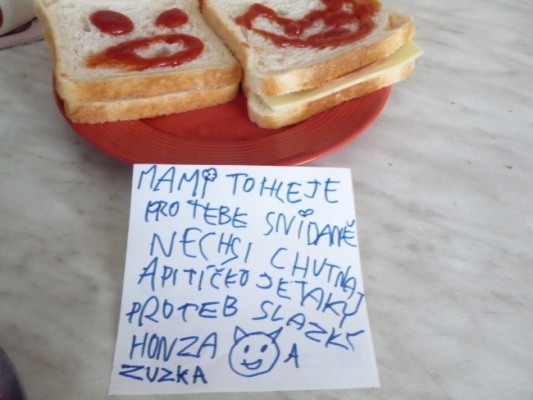 MAMI TOHLE JE
PRO TEBE SNÍDANĚ
NECHSI CHUTNAT
APITÍČKO JETAKY
PROTEB SLAZKI
HONZA A
ZUZKA